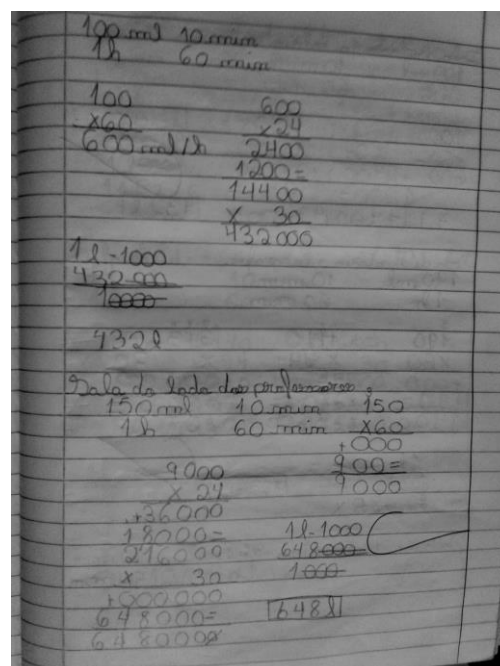 100 ml 10 min
1h 60 min
100
x60
600 ml/h
600
x24
2400
1200=
14400
x 30
432000
1 l - 1000
432000
10000
432 l
Sala do lado dos professores.
150 ml 10 min
1 h 60 min
150
x60
+000
900=
9000
9000
x 24
+36000
18000=
216000
x 30
+000000
648000=
6480000
1 l - 1000
648000
1000
648 l